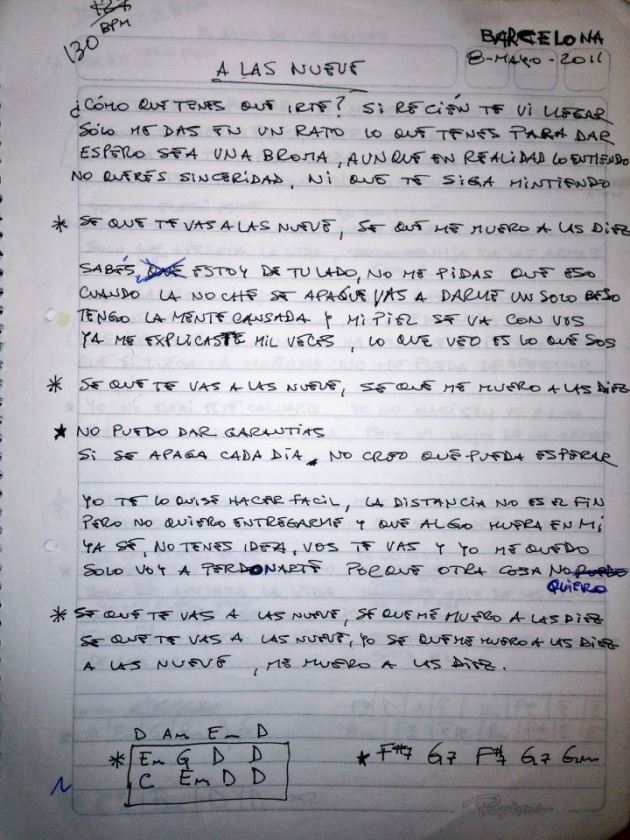 130 BPM
BARCELONA
8-MAYO-2011
A LAS NUEVE
¿CÓMO QUE TENES QUE IRTE? SI RECIÉN TE VI LLEGAR
SÓLO ME DAS EN UN RATO LO QUE TENES PARA DAR
ESPERO SEA UNA BROMA, AUNQUE EN REALIDAD LO ENTIENDO
NO QUERÉS SINCERIDAD, NI QUE TE SIGA MINTIENDO
* SE QUE TE VAS A LAS NUEVE, SE QUE ME MUERO A LAS DIEZ
SABÉS, QUE ESTOY DE TU LADO, NO ME PIDAS QUE ESO
CUANDO LA NOCHE SE APAQUE VAS A DARME UN SOLO BESO
TENGO LA MENTE CANSADA Y MI PIEL SE VA CON VOS
YA ME EXPLICASTE MIL VECES, LO QUE VEO ES LO QUE SOS
* SE QUE TE VAS A LAS NUEVE, SE QUE ME MUERO A LAS DIEZ
★ NO PUEDO DAR GARANTIAS
SI SE APAGA CADA DÍA, NO CREO QUE PUEDA ESPERAR
YO TE LO QUISE HACER FACIL, LA DISTANCIA NO ES EL FIN
PERO NO QUIERO ENTREGARME Y QUE ALGO MUERA EN MÍ
YA SÉ, NO TENES IDEA, VOS TE VAS Y YO ME QUEDO
SOLO VOY A PERDONARTE PORQUE OTRA COSA NO PUEDO
QUIERO
* SE QUE TE VAS A LAS NUEVE, SE QUE ME MUERO A LAS DIEZ
SE QUE TE VAS A LAS NUEVE, YO SE QUE ME MUERO A LAS DIEZ
A LAS NUEVE, ME MUERO A LAS DIEZ.
D Am Em D
* Em G D D
C Em D D
★ F#7 G7 F#7 G7 Gm